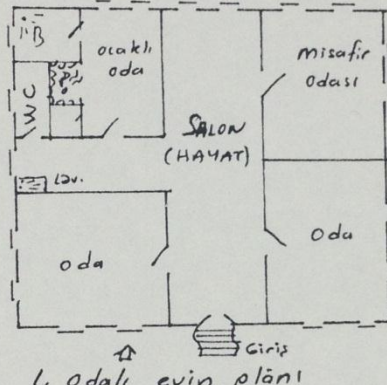 ocaklı
oda
misafir
odası
WC
SALON
(HAYAT)
Lav.
oda
oda
Giriş
4 odalı evin plânı